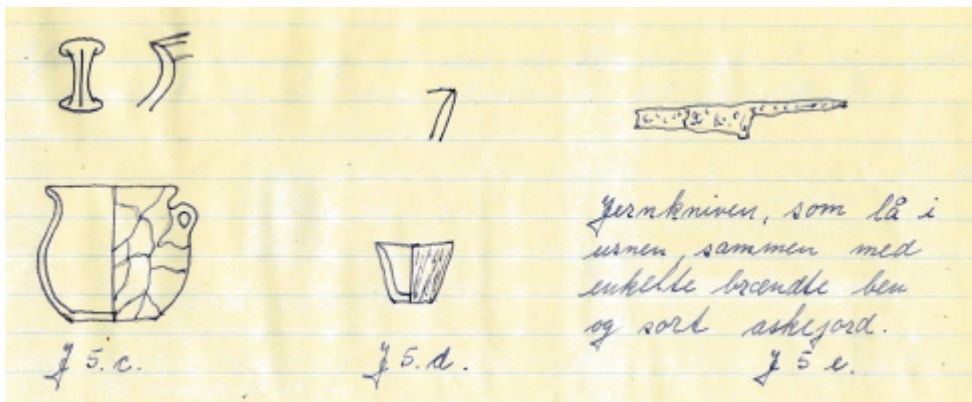 Jernkniven, som lå i
urnen, sammen med
enkelte brændte ben
og sort askejord.
J 5. c.
J 5. d.
J 5 e.